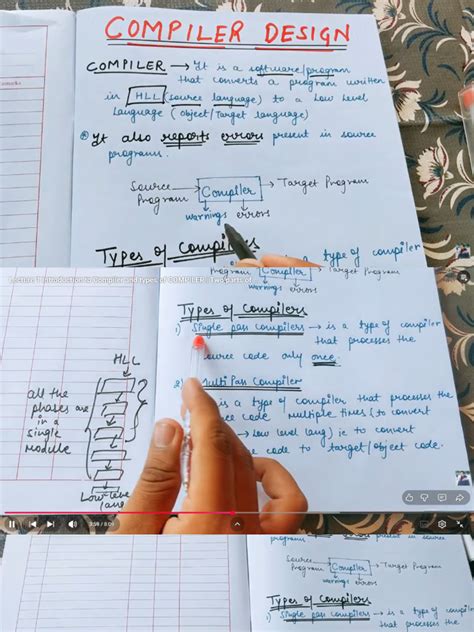 COMPILER DESIGN
COMPILER → It is a software/program
that converts a program written
in HLL (source language) to a Low Level
Language (Object/Target language)
It also reports errors present in source
programs.
Source Program → Compiler → Target Program
warnings errors
Types of Compilers
type of compiler
Program Compiler Target Program
warnings errors
Lecture 1 Introduction to Compiler and types of COMPILER || Two parts of
Types of Compilers
1) Single pass compilers → is a type of compiler
that processes the
source code only once.
2) Multi Pass Compiler
is a type of compiler that processes the
code multiple times (to convert
→ Low level lang) ie to convert
code to target/object code.
HLL
all the
phases are
in a
single
Module
Low-level
lang
3:59 / 8:01
errors present in source
programs.
Source Program → Compiler → Target Program
warnings errors
Types of Compilers
1) Single pass compilers → is a type of
that processes the